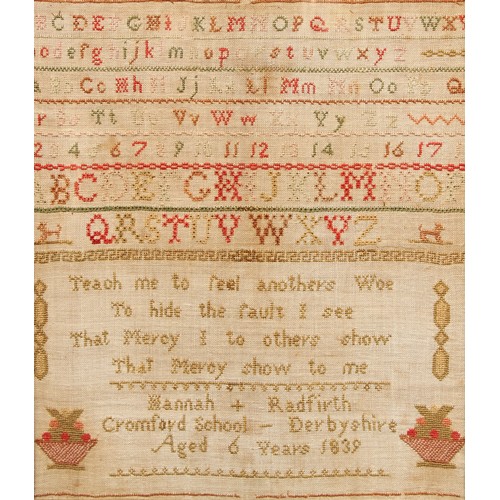 B C D E G H I J K L M N O P Q R S T U V W X Y
b c d e f g h i j k l m o p s t u v w x y z
a b Cc Hh Jj Kk Ll Mm Nn Oo Q
r Ss Tt Uu Vv Ww Xx Yy Zz
2 3 4 6 7 8 9 10 11 12 13 14 15 16 17
A B C D E G H I J K L M N O P
Q R S T U V W X Y Z
Teach me to feel anothers Woe
To hide the fault I see
That Mercy I to others show
That Mercy show to me
Hannah + Radfirth
Cromford School – Derbyshire
Aged 6 Years 1839